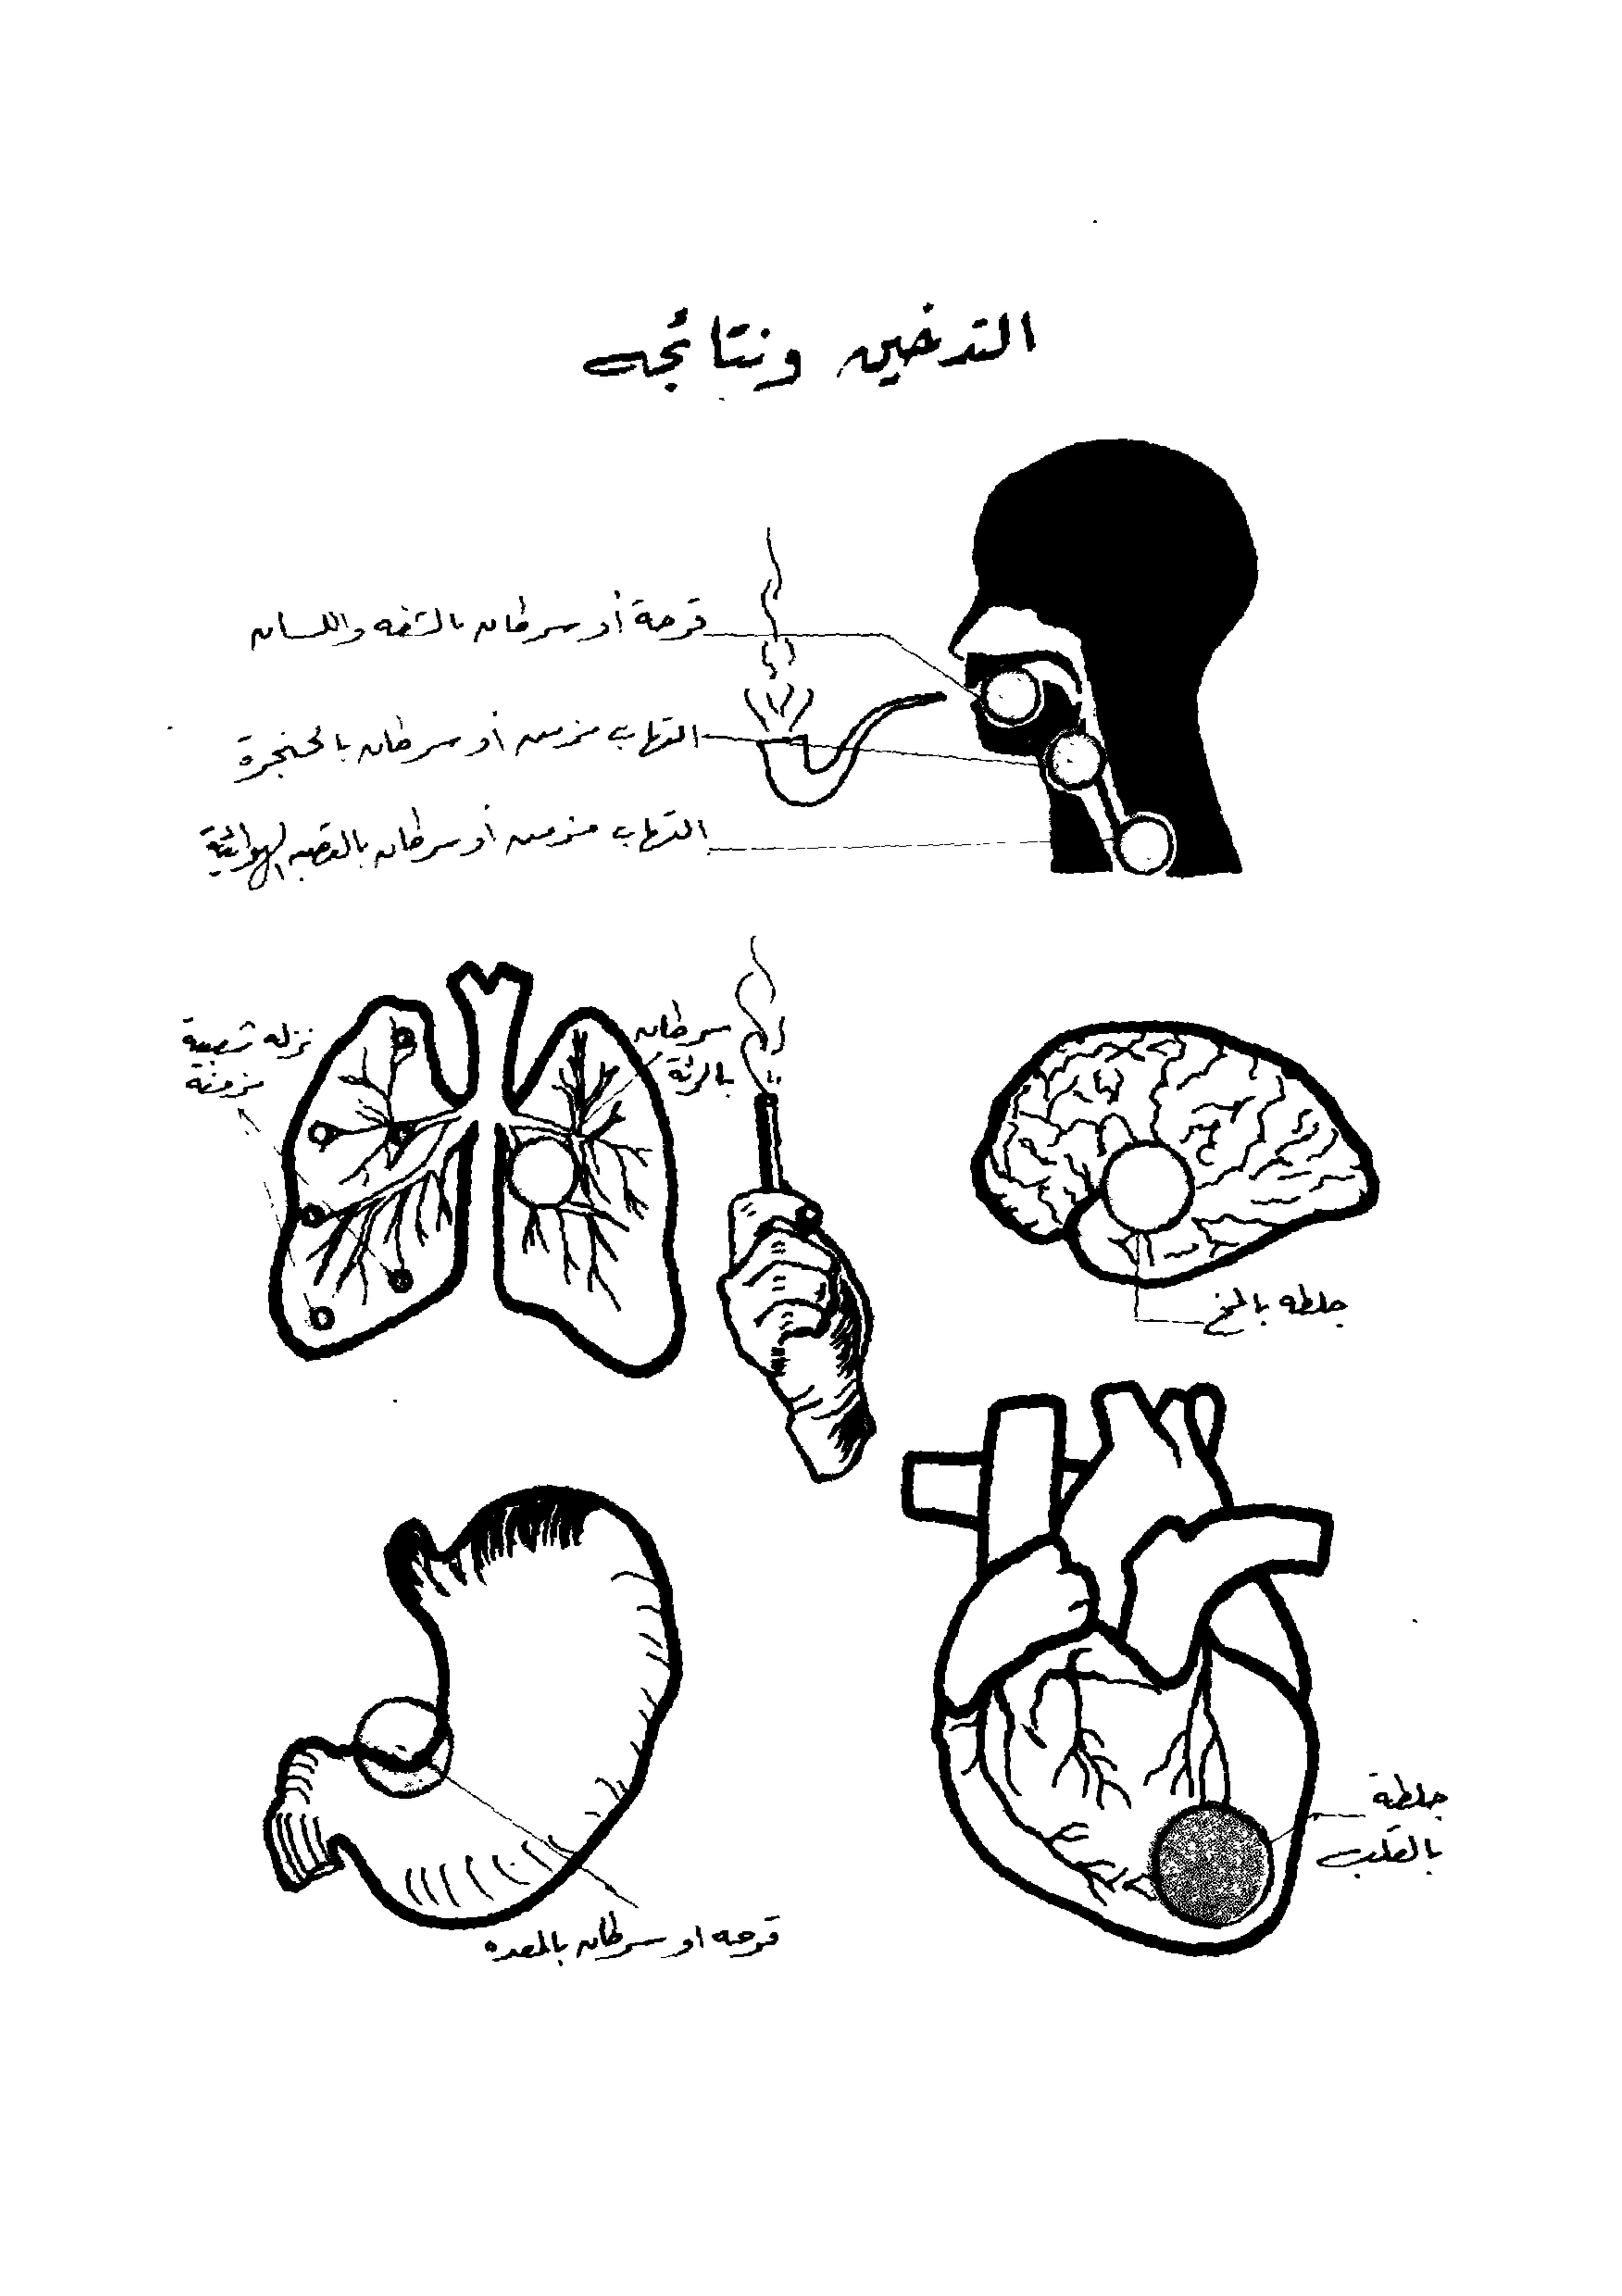 التدخين ونتائجه
قرحة أو سرطان بالشفه واللسان
التهاب مزمن أو سرطان بالحنجرة
التهاب مزمن أو سرطان بالقصبه الهوائية
سرطان
بالرئة
نزله شعبية
مزمنة
جلطه بالمخ
جلطة
بالقلب
قرحه او سرطان بالمعده